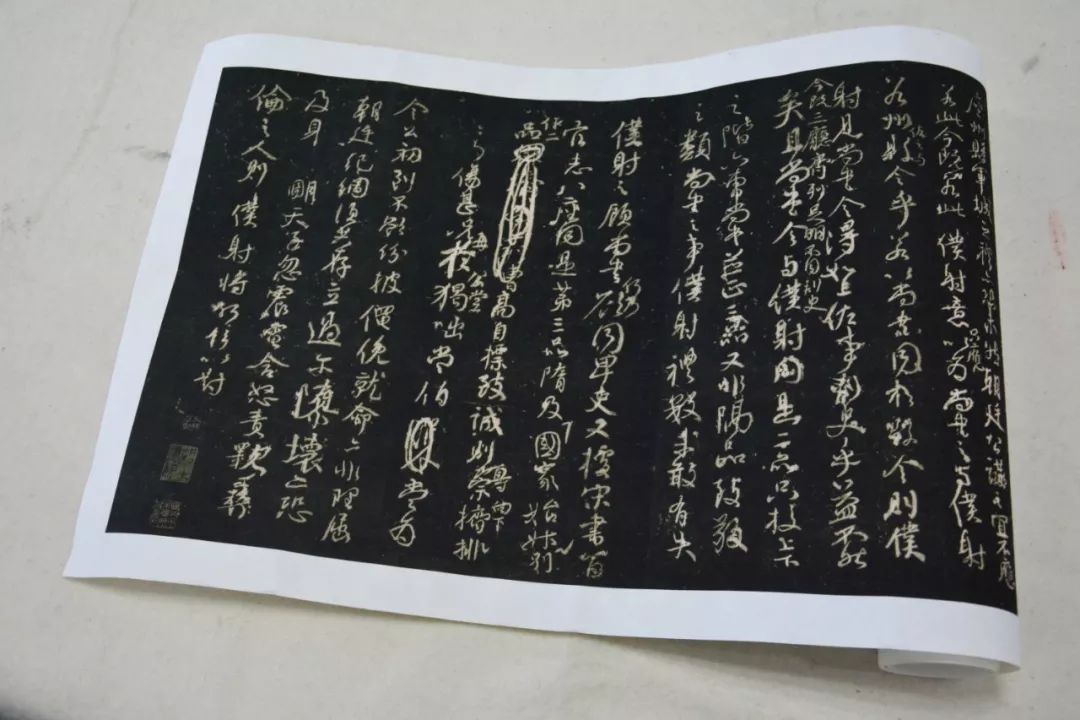 州縣軍城之禮亦恐未然朝廷公讌之宜不應
若此今既若此僕射意只應以為尚書之與僕射
若州佐之與縣令乎若以尚書同於縣令則僕
射見尚書令得如上佐事刺史乎益不然
矣今既三廳齊列足明不同刺史且尚書令與僕射同是二品只校上下
之階六曹尚書並正三品又非隔品致敬
之類尚書之事僕射禮數未敢有失
僕射之顧尚書何乃欲同卑吏又據宋書百
官志八座同是第三品隋及國家始升別
作二品高自標致誠則尊崇向下擠排
無乃傷甚況再於公堂猲咄常伯當為
令公初到不欲紛披僶俛就命亦非理屈
朝廷紀綱須共存立過爾隳壞亦恐
及身明天子忽震電含怒責斁彝
倫之人則僕射將何辭以對